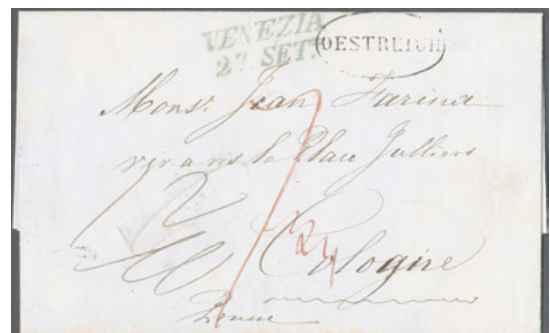 VENEZIA
27. SET.
OESTREICH
Monsr. Jean Farina
vis a vis la Place Julliers
7
24
Cologne